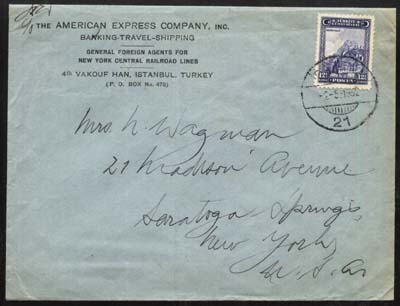 THE AMERICAN EXPRESS COMPANY, INC.
BANKING-TRAVEL-SHIPPING
GENERAL FOREIGN AGENTS FOR
NEW YORK CENTRAL RAILROAD LINES
4th VAKOUF HAN, ISTANBUL, TURKEY
(P. O. BOX No. 475)
12½ 12½
POSTA
21
Mrs. N. Wagman
21 Madison Avenue
Saratoga Springs,
New York,
U. S. A.